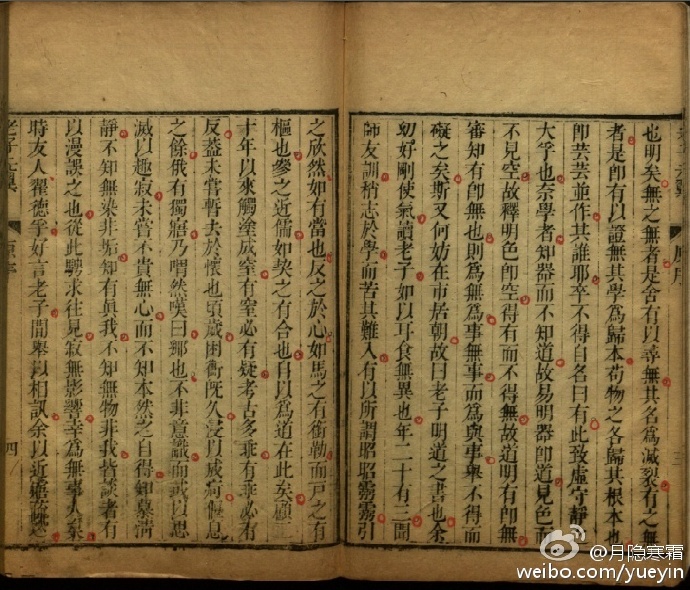 也明矣無之無者是舍有以尋無其名為滅裂有之無
者是即有以證無其學為歸本苟物之各歸其根本也
即芸芸並作其誰耶卒不得自名曰有此致虛守靜
大乎也奈學者知器而不知道故易明器即道見色而
不見空故釋明色即空得有而不得無故道明有即無
審知有即無也則為無為事無事而為與事舉不得而
礙之矣斯又何妨在市居朝故曰老子明道之書也余
幼好剛使氣讀老子如以耳食無異也年二十有三聞
師友訓稍志於學而苦其難入有以所謂昭昭靈靈引
之欣然如有當也反之於心如馬之有銜勒而戶之有
樞也參之近儒如契之有合也自以為道在此矣顧二
十年以來觸塗成窒有窒必有疑考古多乖有乖必有
反蓋未嘗暫去於懷也頃歲困衡既久浸以成痾偃息
之餘俄有獨寤乃喟然嘆曰鄉也不非意識而或以思
滅以趣寂未嘗不貴無心而不知本然之自得知慕清
靜不知無染非垢知有真我不知無物非我皆談者有
以漫誤之也從此馳求往見寂無影響幸為無事人矣
時友人翟德孚好言老子間舉以相訊余以近寤
四
@月隐寒霜
weibo.com/yueyin